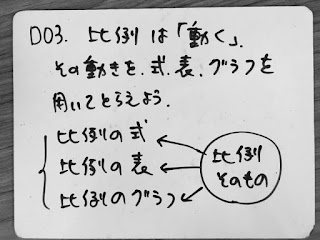 D03. 比例は「動く」、
その動きを、式、表、グラフを
用いてとらえよう.
比例の式
比例の表
比例のグラフ
比例
そのもの